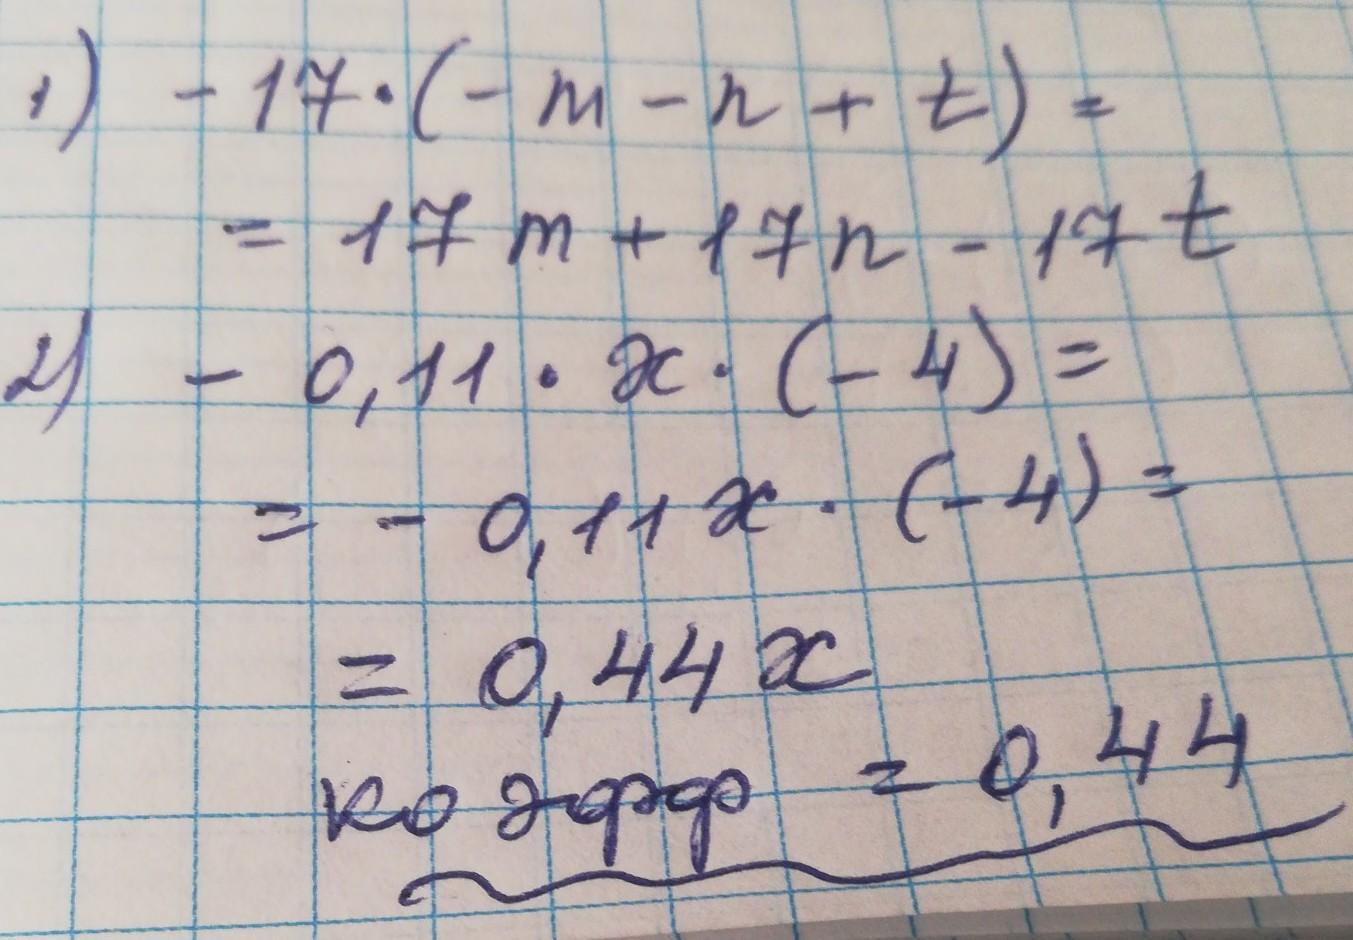 1) - 17 · (- m - n + t) =
= 17 m + 17 n - 17 t
2) - 0,11 · x · (- 4) =
= - 0,11 x · (- 4) =
= 0,44 x
коэфф = 0,44